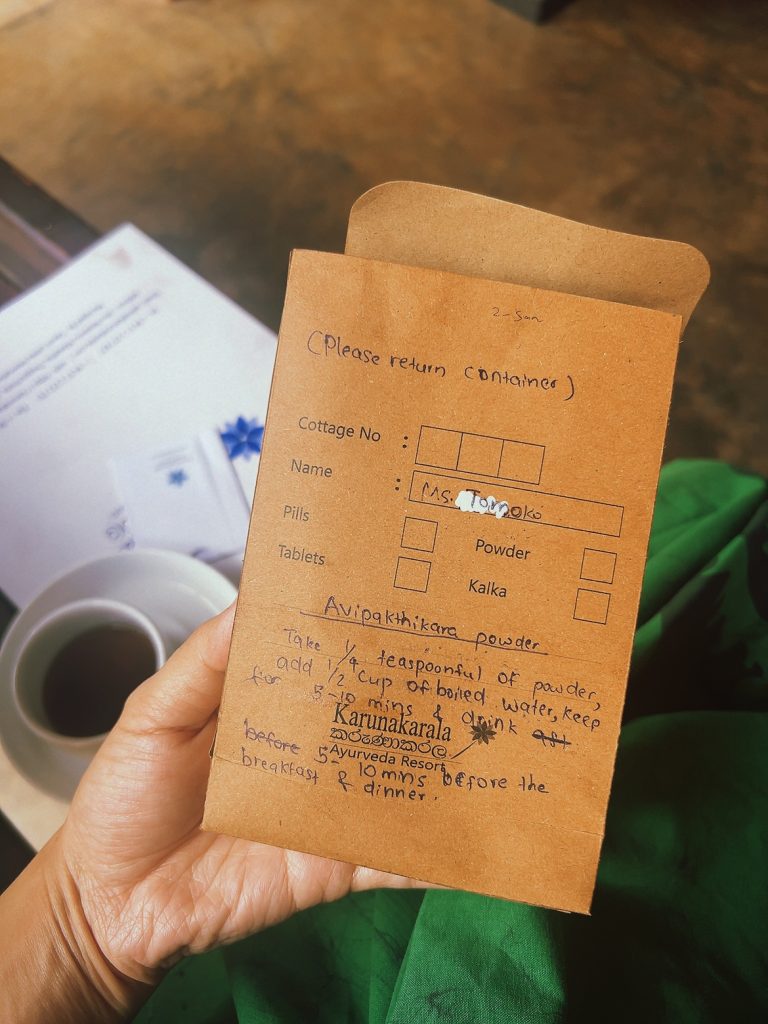 2-Sun
(Please return container)
Cottage No :
Name : Ms. Tomoko
Pills
Powder
Tablets
Kalka
Avipakthikara powder
Take 1/4 teaspoonful of powder,
add 1/2 cup of boiled water, keep
for 5-10 mins & drink aft
Karunakarala
කරුණාකරල
Ayurveda Resort
before 5- 10mns before the
breakfast & dinner.